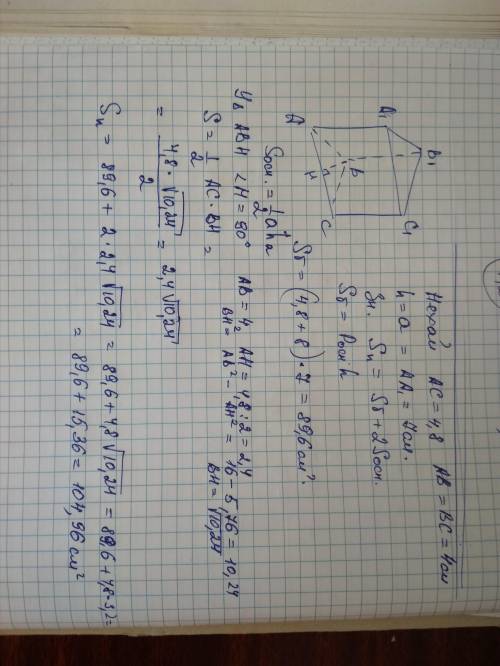 B₁
A₁
C₁
B
A
H
C
Нехай AC = 4,8 AB = BC = 4см
h = a = AA₁ = 7см.
Зн. Sп = Sб + 2Sосн.
Sб = Pосн h
Sб = (4,8 + 8) · 7 = 89,6 см².
Sосн. = 1/2 a hₐ
У ∆ ABH ∠H = 90° AB = 4 AH = 4,8 : 2 = 2,4
BH² = AB² - AH² = 16 - 5,76 = 10,24
BH = √10,24
S = 1/2 AC · BH =
= 4,8 · √10,24 / 2 = 2,4 √10,24
Sп = 89,6 + 2 · 2,4 √10,24 = 89,6 + 4,8 √10,24 = 89,6 + 4,8 · 3,2 =
= 89,6 + 15,36 = 104,96 см²